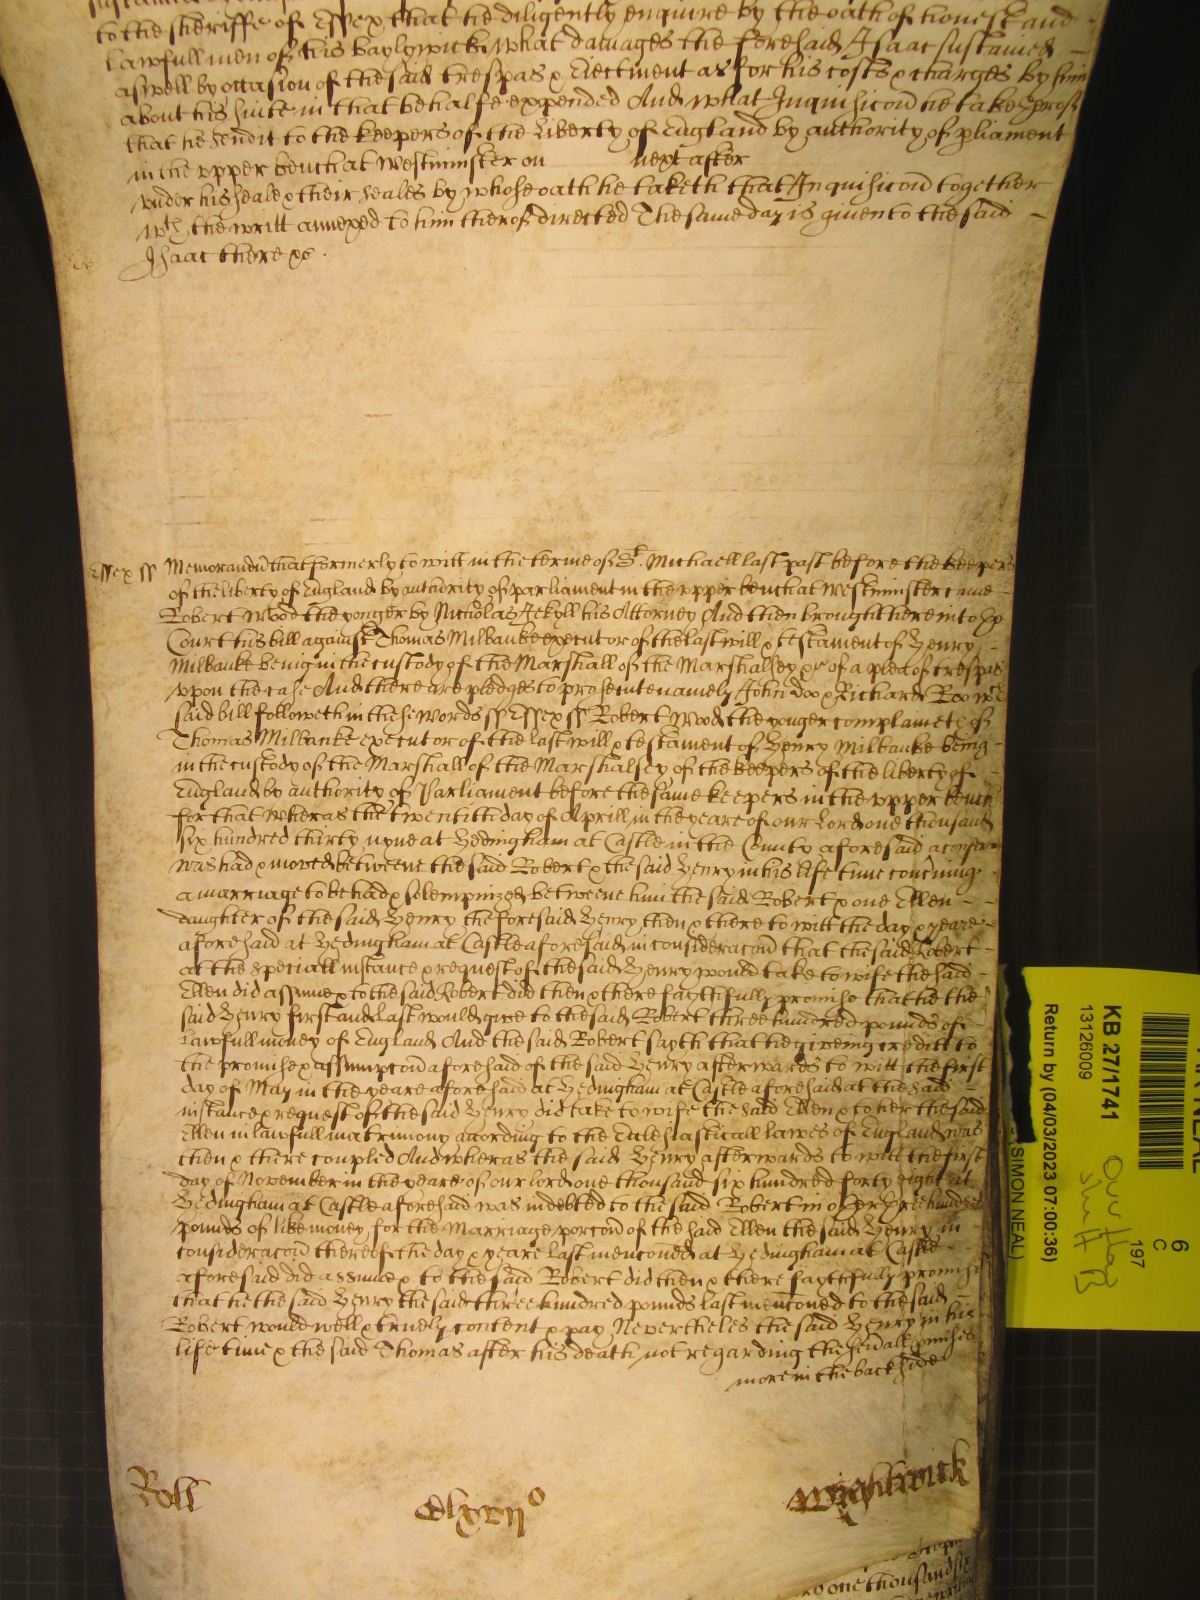 to the sheriffe of Essex that he diligently enquire by the oath of honest and
lawfull men of his baylywick what damages the foresaid Isaac sustained
aswell by occasion of the said trespas & Eiectment as for his costs & charges by him
about his suite in that behalfe expended And what Inquisicon he takes thereof
that he send it to the keepers of the Liberty of England by authority of pliament
in the vpper bench at Westminster on next after
vnder his seale & their seales by whose oath he taketh that Inquisicon together
wth the writt annexed to him thereof directed The same day is given to the said
Isaac there &c.
Essex ss Memorand that formerly to witt in the terme of St. Michaell last past before the keepers
of the liberty of England by authority of parliament in the vpper bench at Westminster came
Robert Wood the yonger by Nicholas Jekyll his Attorney And then brought here into ye
Court his bill against Thomas Milbanke executor of the last will & testament of Henry
Milbanke being in the custody of the Marshall of the Marshalsey &c of a plea of trespas
vpon the case And there are pledges to prosecute namely John Doo & Richard Roo wch
said bill followeth in these words ss Essex ss Robert Wood the yonger complaineth of
Thomas Milbanke executor of the last will & testament of Henry Milbanke being
in the custody of the Marshall of the Marshalsey of the keepers of the liberty of
England by authority of Parliament before the same keepers in the vpper bench
for that wheras the twentith day of Aprill in the yeare of our Lord one thousand
six hundred thirty nyne at Hedingham at Castle in the County aforesaid a confer
was had & moved betweene the said Robert & the said Henry in his life time concning
a marriage to be had & solempnized betweene him the said Robert & one Ellen
daughter of the said Henry the foresaid Henry then & there to witt the day & yeare
aforesaid at Hedingham at Castle aforesaid in consideracon that the said Robert
at the speciall instance & request of the said Henry would take to wife the said
Ellen did assume & to the said Robert did then & there faythfully promise that he the
said Henry first and last would give to the said Robert three hundred pounds of
lawfull money of England And the said Robert sayth that he giveing credit to
the promise & assumpcon aforesaid of the said Henry afterwards to witt the first
day of May in the yeare aforesaid at Hedingham at Castle aforesaid at the said
instance & request of the said Henry did take to wife the said Ellen & to her the said
Ellen in lawfull matrimony according to the Ecclesiasticall lawes of England was
then & there coupled And wheras the said Henry afterwards to witt the first
day of November in the yeare of our lord one thousand six hundred forty eight at
Hedingham at Castle aforesaid was indebted to the said Robert in other three hundred
pounds of like money for the Marriage porcon of the said Ellen the said Henry in
consideracon thereof the day & yeare last menconed at Hedingham at Castle
aforesaid did assume & to the said Robert did then & there faythfully promise
that he the said Henry the said three hundred pounds last menconed to the said
Robert would well & truely content & pay Nevertheles the said Henry in his
life time & the said Thomas after his death not regarding the sevall pmises
more in the back side
Roll Clxvii° Wightwick
one thousand six
KB 27/1741
13126009
Return by (04/03/2023 07:00:36)
(SIMON NEAL)
6
C
197